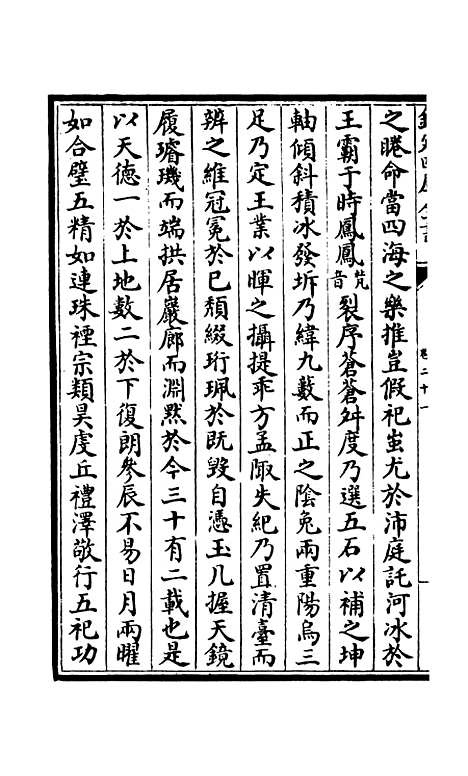 之睠命當四海之樂推豈假祀蚩尤於沛庭託河冰於
王霸于時鳳鳳梵音裂序蒼蒼舛度乃選五石以補之坤
軸傾斜積冰發坼乃緯九藪而正之陰兔兩重陽烏三
足乃定王業以暉之攝提乖方孟陬失紀乃置清臺而
辨之維冠冕於已頹綴珩珮於既毀自憑玉几握天鏡
履璿璣而端拱居巖廊而淵默於今三十有二載也是
以天德一於上地數二於下復朗參辰不易日月兩曜
如合璧五精如連珠禋宗類昊虔丘禮澤敬行五祀功
卷二十一